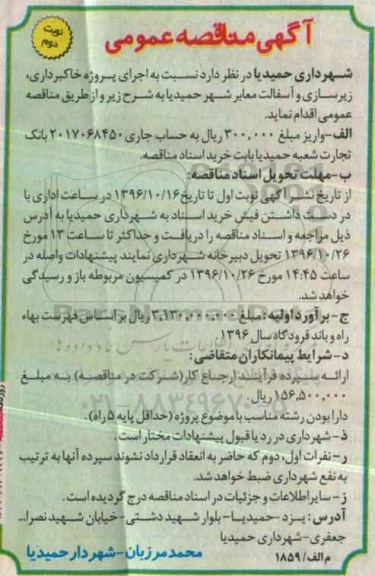 آگهی مناقصه عمومی
نوبت دوم
شهرداری حمیدیا در نظر دارد نسبت به اجرای پروژه خاکبرداری،
زیرسازی و آسفالت معابر شهر حمیدیا به شرح زیر و از طریق مناقصه
عمومی اقدام نماید.
الف-واریز مبلغ ۳۰۰,۰۰۰ ریال به حساب جاری ۲۰۱۷۰۶۸۴۵۰ بانک
تجارت شعبه حمیدیا بابت خرید اسناد مناقصه.
ب-مهلت تحویل اسناد مناقصه:
از تاریخ نشر آگهی نوبت اول تا تاریخ ۱۳۹۶/۱۰/۱۶ در ساعات اداری با
در دست داشتن فیش خرید اسناد به شهرداری حمیدیا به آدرس
ذیل مراجعه و اسناد مناقصه را دریافت و حداکثر تا ساعت ۱۳ مورخ
۱۳۹۶/۱۰/۲۶ تحویل دبیرخانه شهرداری نمایند پیشنهادات واصله در
ساعت ۱۴:۴۵ مورخ ۱۳۹۶/۱۰/۲۶ در کمیسیون مربوطه باز و رسیدگی
خواهد شد.
ج-برآورد اولیه: مبلغ ۳,۱۳۰,۰۰۰,۰۰۰ ریال بر اساس فهرست بهاء
راه و باند فرودگاه سال ۱۳۹۶
د-شرایط پیمانکاران متقاضی:
ارائه سپرده فرآیند ارجاع کار(شرکت در مناقصه) به مبلغ
۱۵۶,۵۰۰,۰۰۰ ریال
دارا بودن رشته مناسب با موضوع پروژه (حداقل پایه ۵ راه).
ذ-شهرداری در رد یا قبول پیشنهادات مختار است.
ر-نفرات اول، دوم که حاضر به انعقاد قرارداد نشوند سپرده آنها به ترتیب
به نفع شهرداری ضبط خواهد شد.
ز-سایر اطلاعات و جزئیات در اسناد مناقصه درج گردیده است.
آدرس: یزد-حمیدیا-بلوار شهید دشتی-خیابان شهید نصرا...
جعفری-شهرداری حمیدیا
محمد مرزبان-شهردار حمیدیا
م الف/ ۱۸۵۹